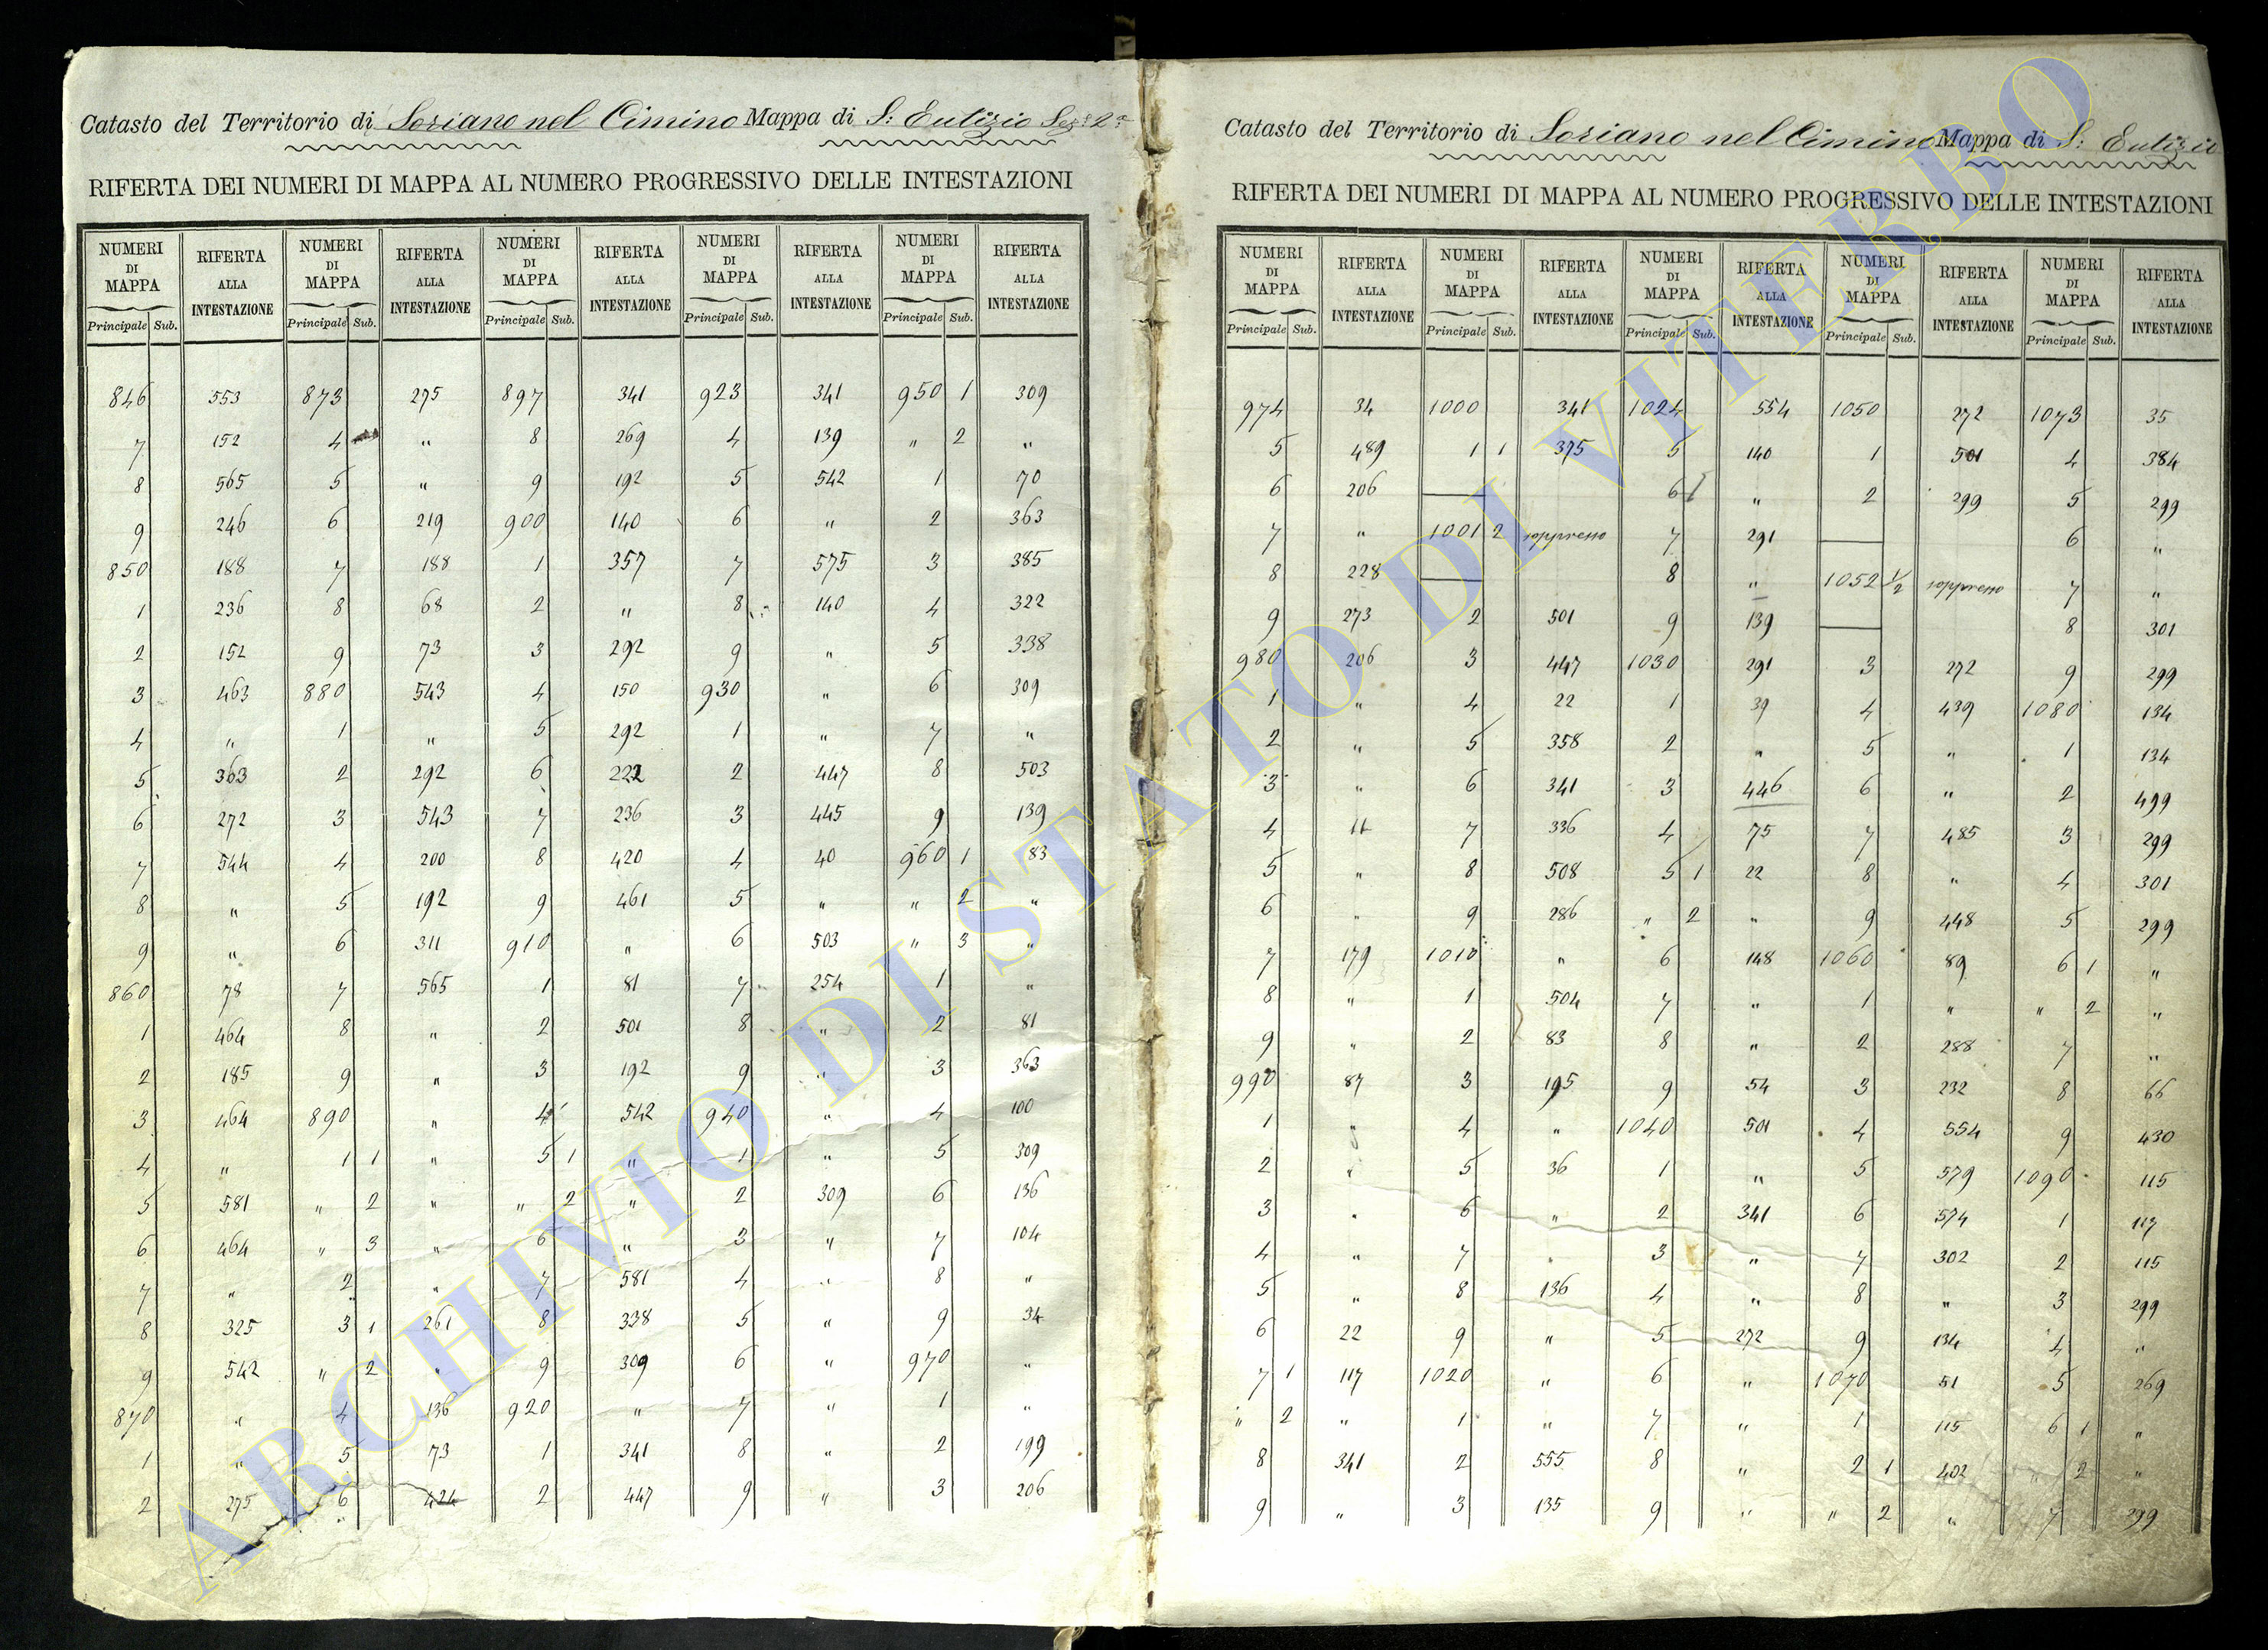 Catasto del Territorio di Soriano nel Cimino Mappa di S: Eutizio Sez.e 2a
RIFERTA DEI NUMERI DI MAPPA AL NUMERO PROGRESSIVO DELLE INTESTAZIONI
NUMERI DI MAPPA RIFERTA ALLA INTESTAZIONE NUMERI DI MAPPA RIFERTA ALLA INTESTAZIONE NUMERI DI MAPPA RIFERTA ALLA INTESTAZIONE NUMERI DI MAPPA RIFERTA ALLA INTESTAZIONE NUMERI DI MAPPA RIFERTA ALLA INTESTAZIONE
Principale Sub. Principale Sub. Principale Sub. Principale Sub. Principale Sub.
846 553 873 275 897 341 923 341 950 1 309
7 152 4 " 8 269 4 139 " 2 "
8 565 5 " 9 192 5 542 1 70
9 246 6 219 900 140 6 " 2 363
850 188 7 188 1 357 7 575 3 385
1 236 8 68 2 " 8 140 4 322
2 152 9 73 3 292 9 " 5 338
3 463 880 543 4 150 930 " 6 309
4 " 1 " 5 292 1 " 7 "
5 363 2 292 6 222 2 447 8 503
6 272 3 543 7 236 3 445 9 139
7 544 4 200 8 420 4 40 960 1 83
8 " 5 192 9 461 5 " " 2 "
9 " 6 311 910 " 6 503 " 3 "
860 78 7 565 1 81 7 254 1 "
1 464 8 " 2 501 8 " 2 81
2 185 9 " 3 192 9 " 3 363
3 464 890 " 4 542 940 " 4 100
4 " 1 1 " 5 1 " 1 " 5 309
5 581 " 2 " " 2 " 2 309 6 136
6 464 " 3 " 6 " 3 " 7 104
7 " 2 " 7 581 4 " 8 "
8 325 3 1 261 8 338 5 " 9 34
9 542 " 2 " 9 309 6 " 970 "
870 " 4 136 920 " 7 " 1 "
1 " 5 73 1 341 8 " 2 199
2 275 6 424 2 447 9 " 3 206
Catasto del Territorio di Soriano nel Cimino Mappa di S: Eutizio
RIFERTA DEI NUMERI DI MAPPA AL NUMERO PROGRESSIVO DELLE INTESTAZIONI
NUMERI DI MAPPA RIFERTA ALLA INTESTAZIONE NUMERI DI MAPPA RIFERTA ALLA INTESTAZIONE NUMERI DI MAPPA RIFERTA ALLA INTESTAZIONE NUMERI DI MAPPA RIFERTA ALLA INTESTAZIONE NUMERI DI MAPPA RIFERTA ALLA INTESTAZIONE
Principale Sub. Principale Sub. Principale Sub. Principale Sub. Principale Sub.
974 34 1000 341 1024 554 1050 272 1073 35
5 489 1 1 375 5 140 1 501 4 384
6 206 6 " 2 299 5 299
7 " 1001 2 soppresso 7 291 6 "
8 228 8 " 1052 1/2 soppresso 7 "
9 273 2 501 9 139 8 301
980 206 3 447 1030 291 3 272 9 299
1 " 4 22 1 39 4 439 1080 134
2 " 5 358 2 " 5 " 1 134
3 " 6 341 3 446 6 " 2 499
4 11 7 336 4 75 7 485 3 299
5 " 8 508 5 1 22 8 " 4 301
6 " 9 286 " 2 " 9 448 5 299
7 179 1010 " 6 148 1060 89 6 1 "
8 " 1 504 7 " 1 " " 2 "
9 " 2 83 8 " 2 288 7 "
990 87 3 195 9 54 3 232 8 66
1 " 4 " 1040 501 4 554 9 430
2 " 5 36 1 " 5 579 1090 115
3 " 6 " 2 341 6 574 1 117
4 " 7 " 3 " 7 302 2 115
5 " 8 136 4 " 8 " 3 299
6 22 9 " 5 272 9 134 4 "
7 1 117 1020 " 6 " 1070 51 5 269
" 2 " 1 " 7 " 1 115 6 1 "
8 341 2 555 8 " 2 1 402 " 2 "
9 " 3 135 9 " " 2 " 7 399
ARCHIVIO DI STATO DI VITERBO